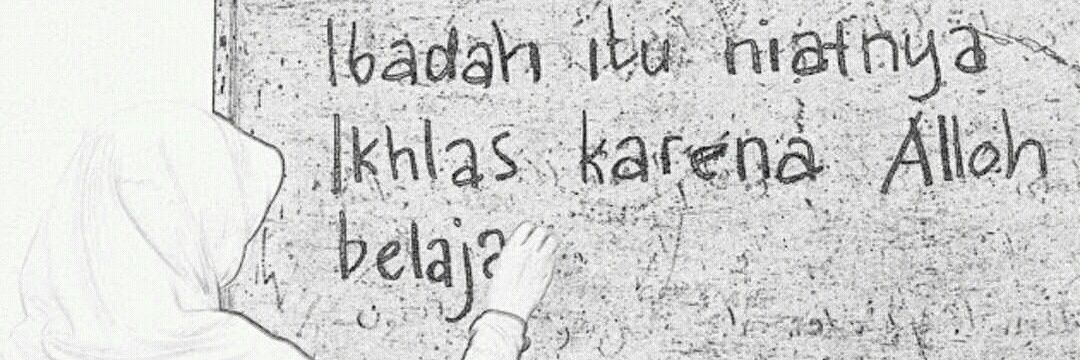 Ibadah itu niatnya
Ikhlas karena Alloh
belaj?